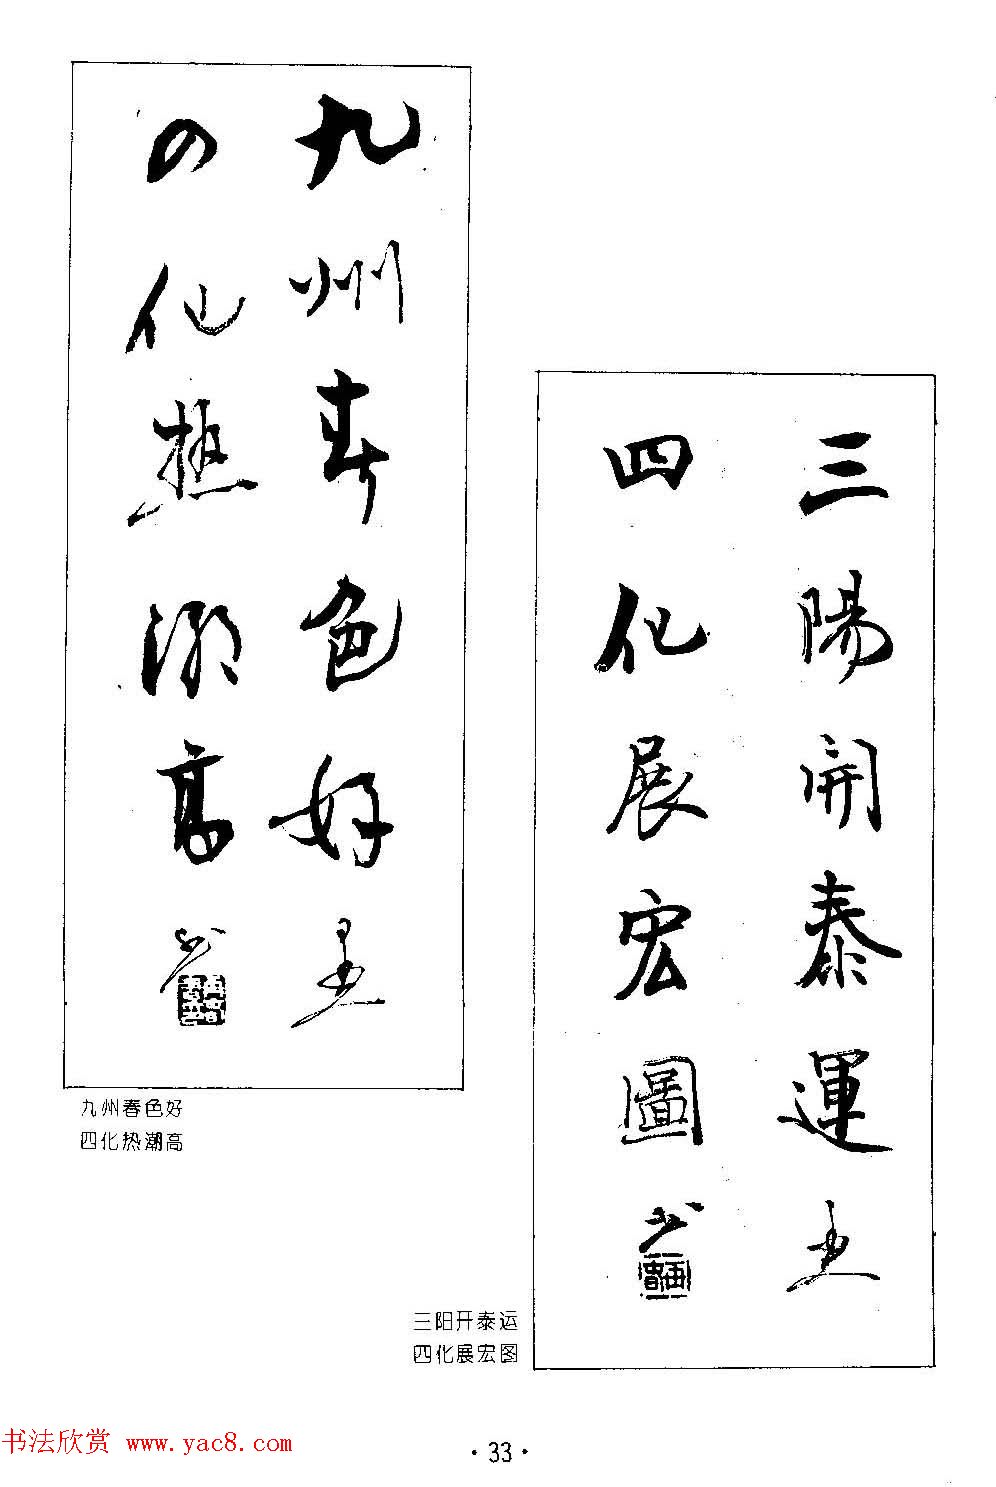 九州春色好
四化热潮高
九州春色好
四化热潮高
三陽開泰運
四化展宏圖
三阳开泰运
四化展宏图
书法欣赏 www.yac8.com
·33·